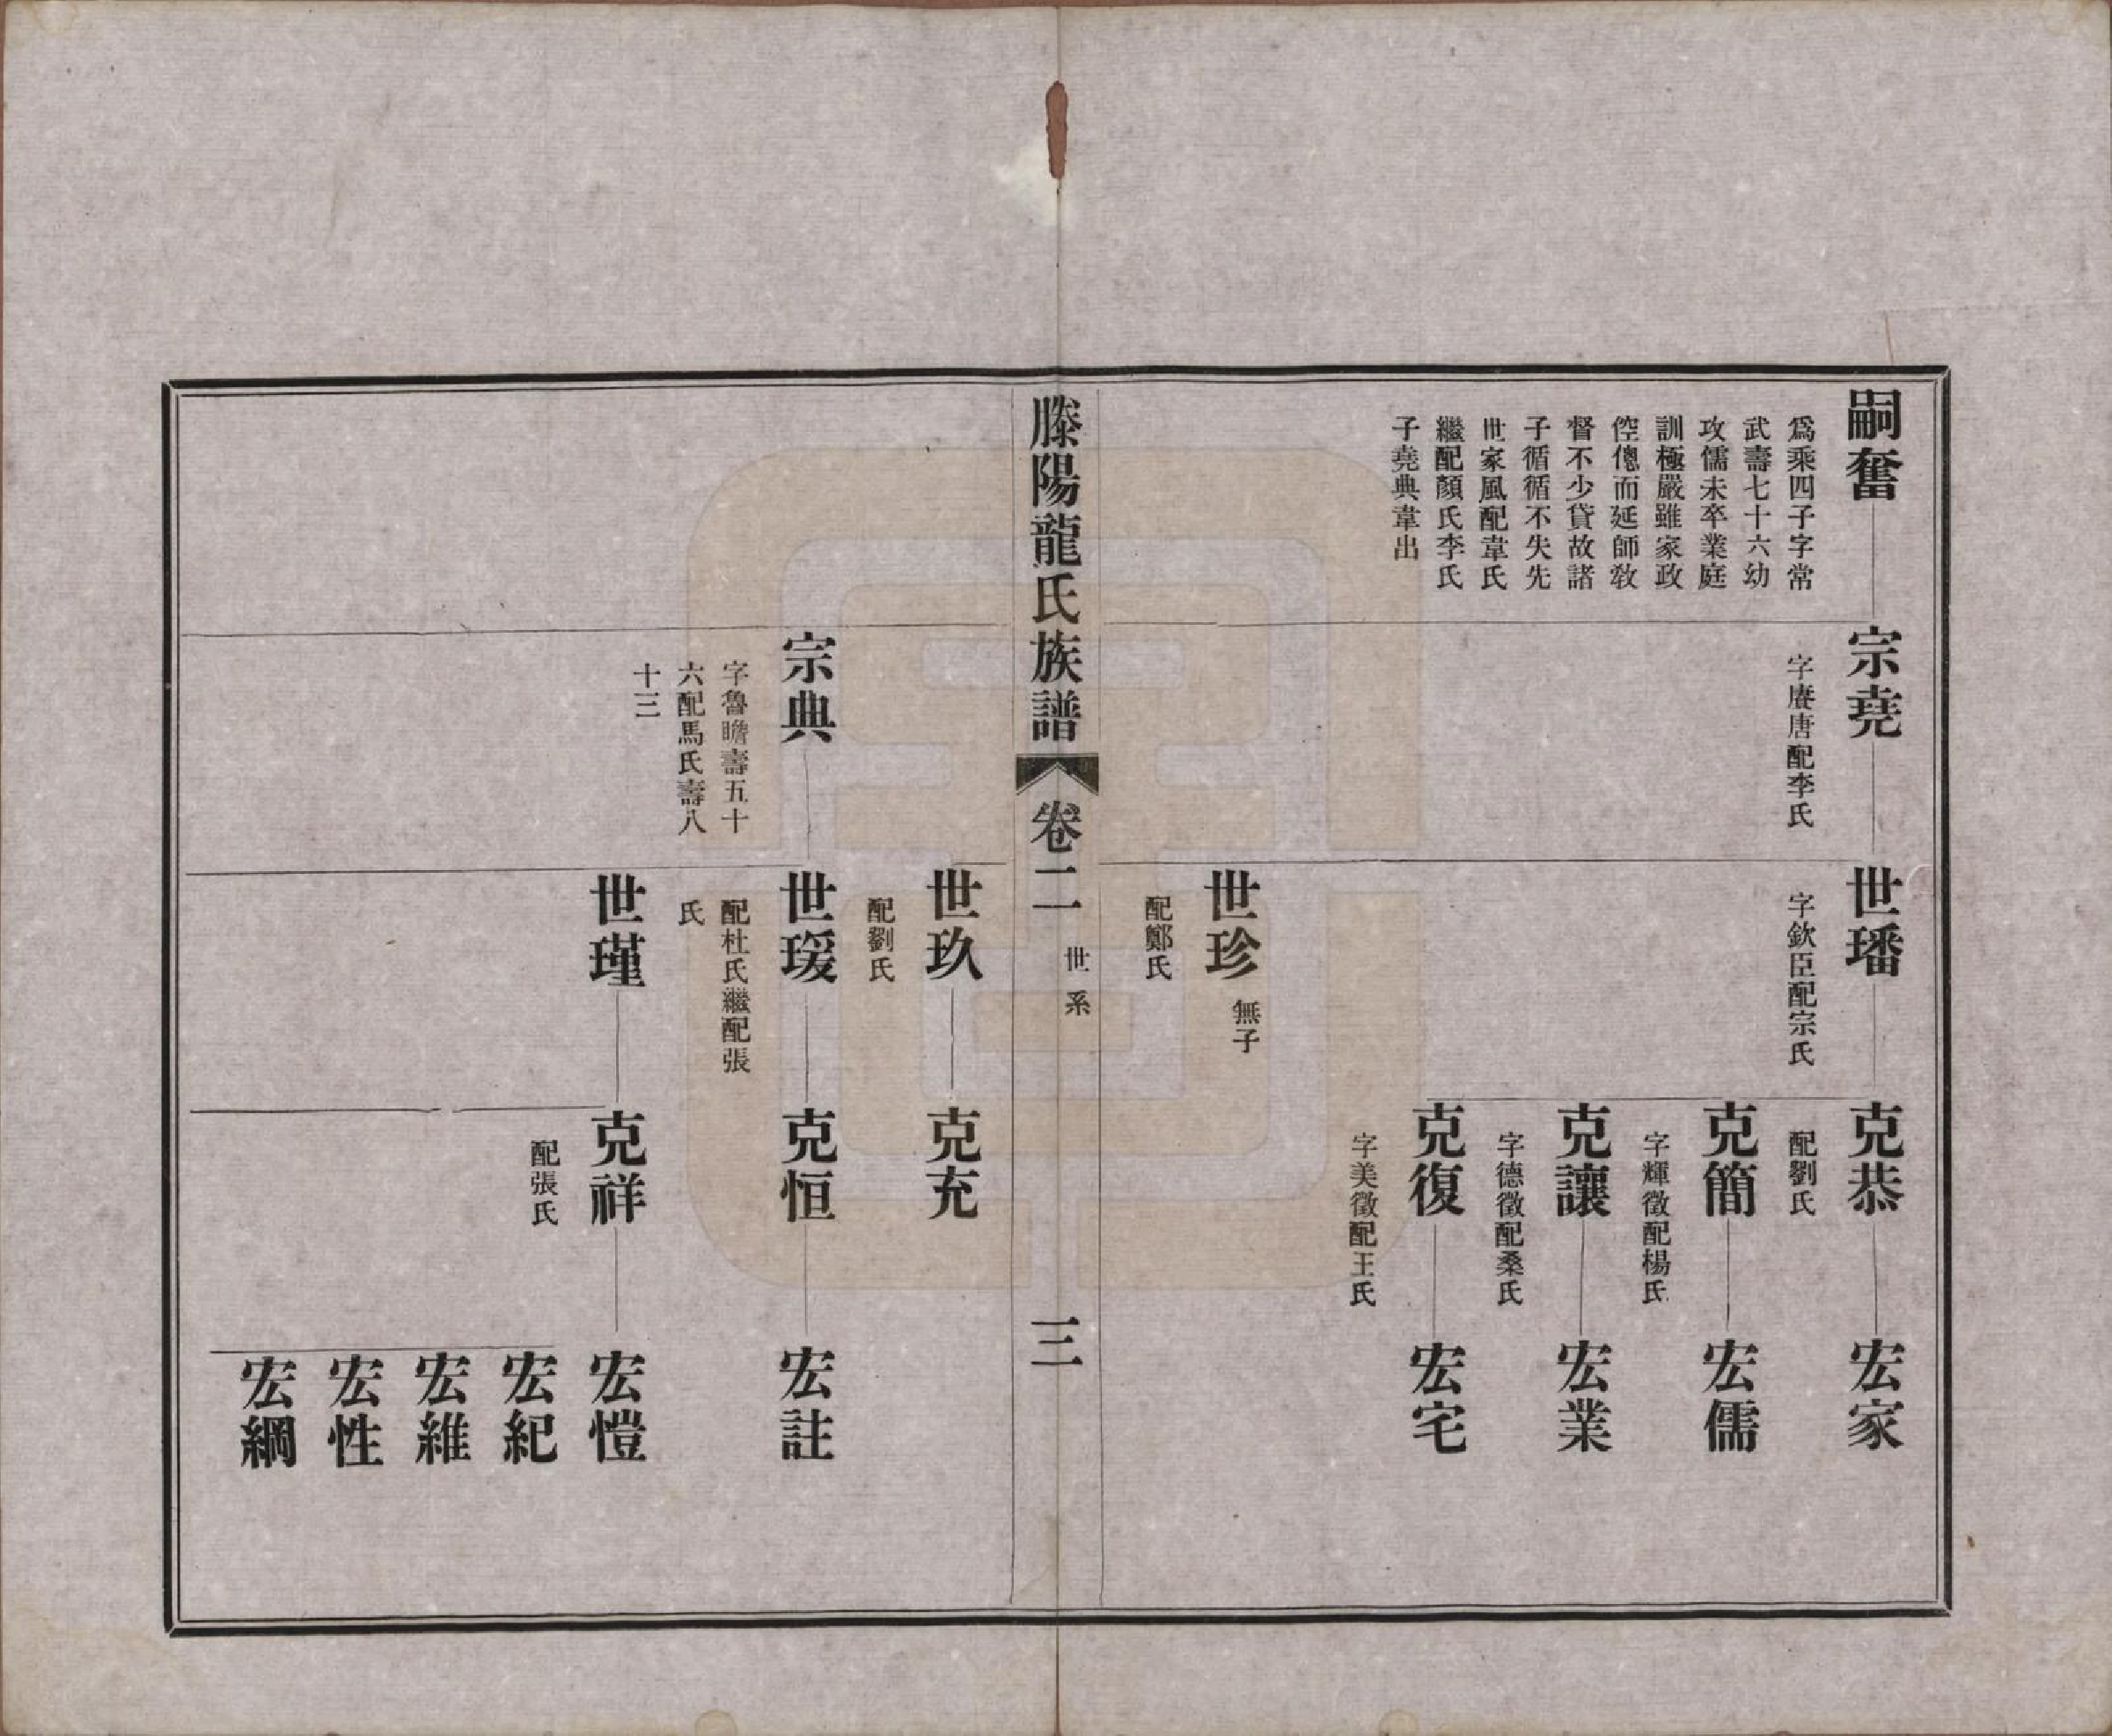 嗣奮
爲乘四子字常
武壽七十六幼
攻儒未卒業庭
訓極嚴雖家政
倥傯而延師敎
督不少貸故諸
子循循不失先
世家風配韋氏
繼配顏氏李氏
子堯典韋出
宗堯
字賡唐配李氏
世璠
字欽臣配宗氏
克恭
配劉氏
宏家
克簡
字輝徵配楊氏
宏儒
克讓
字德徵配桑氏
宏業
克復
字美徵配王氏
宏宅
世珍
無子
配鄭氏
滕陽龍氏族譜
卷二
世系
三
世玖
配劉氏
克充
宗典
字魯瞻壽五十
六配馬氏壽八
十三
世瑗
配杜氏繼配張
氏
克恒
宏註
世瑾
克祥
配張氏
宏愷
宏紀
宏維
宏性
宏綱